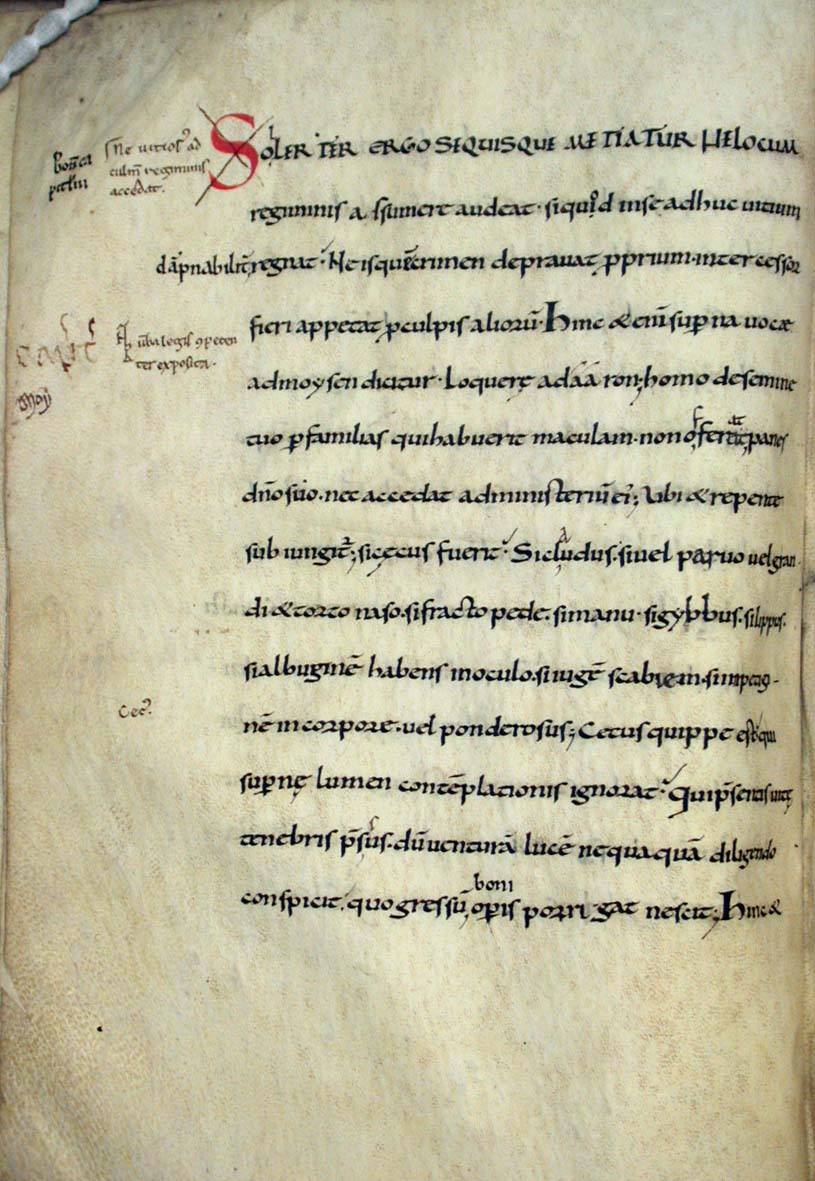 SOLER TER ERGO SE QUISQUE METIATUR NE LOCUM
regiminis assumere audeat. si quid in se adhuc uitium
dāpnabilit̄ regnat. Ne is quē crimen deprauat ꝓprium. intercessor
fieri appetat ꝑ culpis aliorū. Hinc & enī suꝑna uoce
ad moysen dicitur. Loquere ad aaron; homo de semine
tuo ꝑ familias qui habuerit maculam. non offeret panes
dn̄o suo. nec accedat ad ministeriū ei᾿; Ubi & repente
subiungit᾿; si cęcus fuerit. Si claudus. si uel paruo uel gran
di & torto naso. si fracto pede. si manu. si gybbus. si lippus.
si albuginē habens in oculo. si iugē scabiem. si inpetigi-
nē in corpore. uel ponderosus; Cecus quippe est qui
suꝑnę lumen contēplationis ignorat. Qui p̄sentis uitę
tenebris p̄ssus. dū uenturā lucē nequaquā diligendo
conspicit. quo gressū boni oꝑis porrigat nescit; Hinc &
Ne uitios᾿ ad
culm̄ regiminis
accedat.
uerba legis ꝯpeten
ter exposita.
Moyſ
Cec᾿.